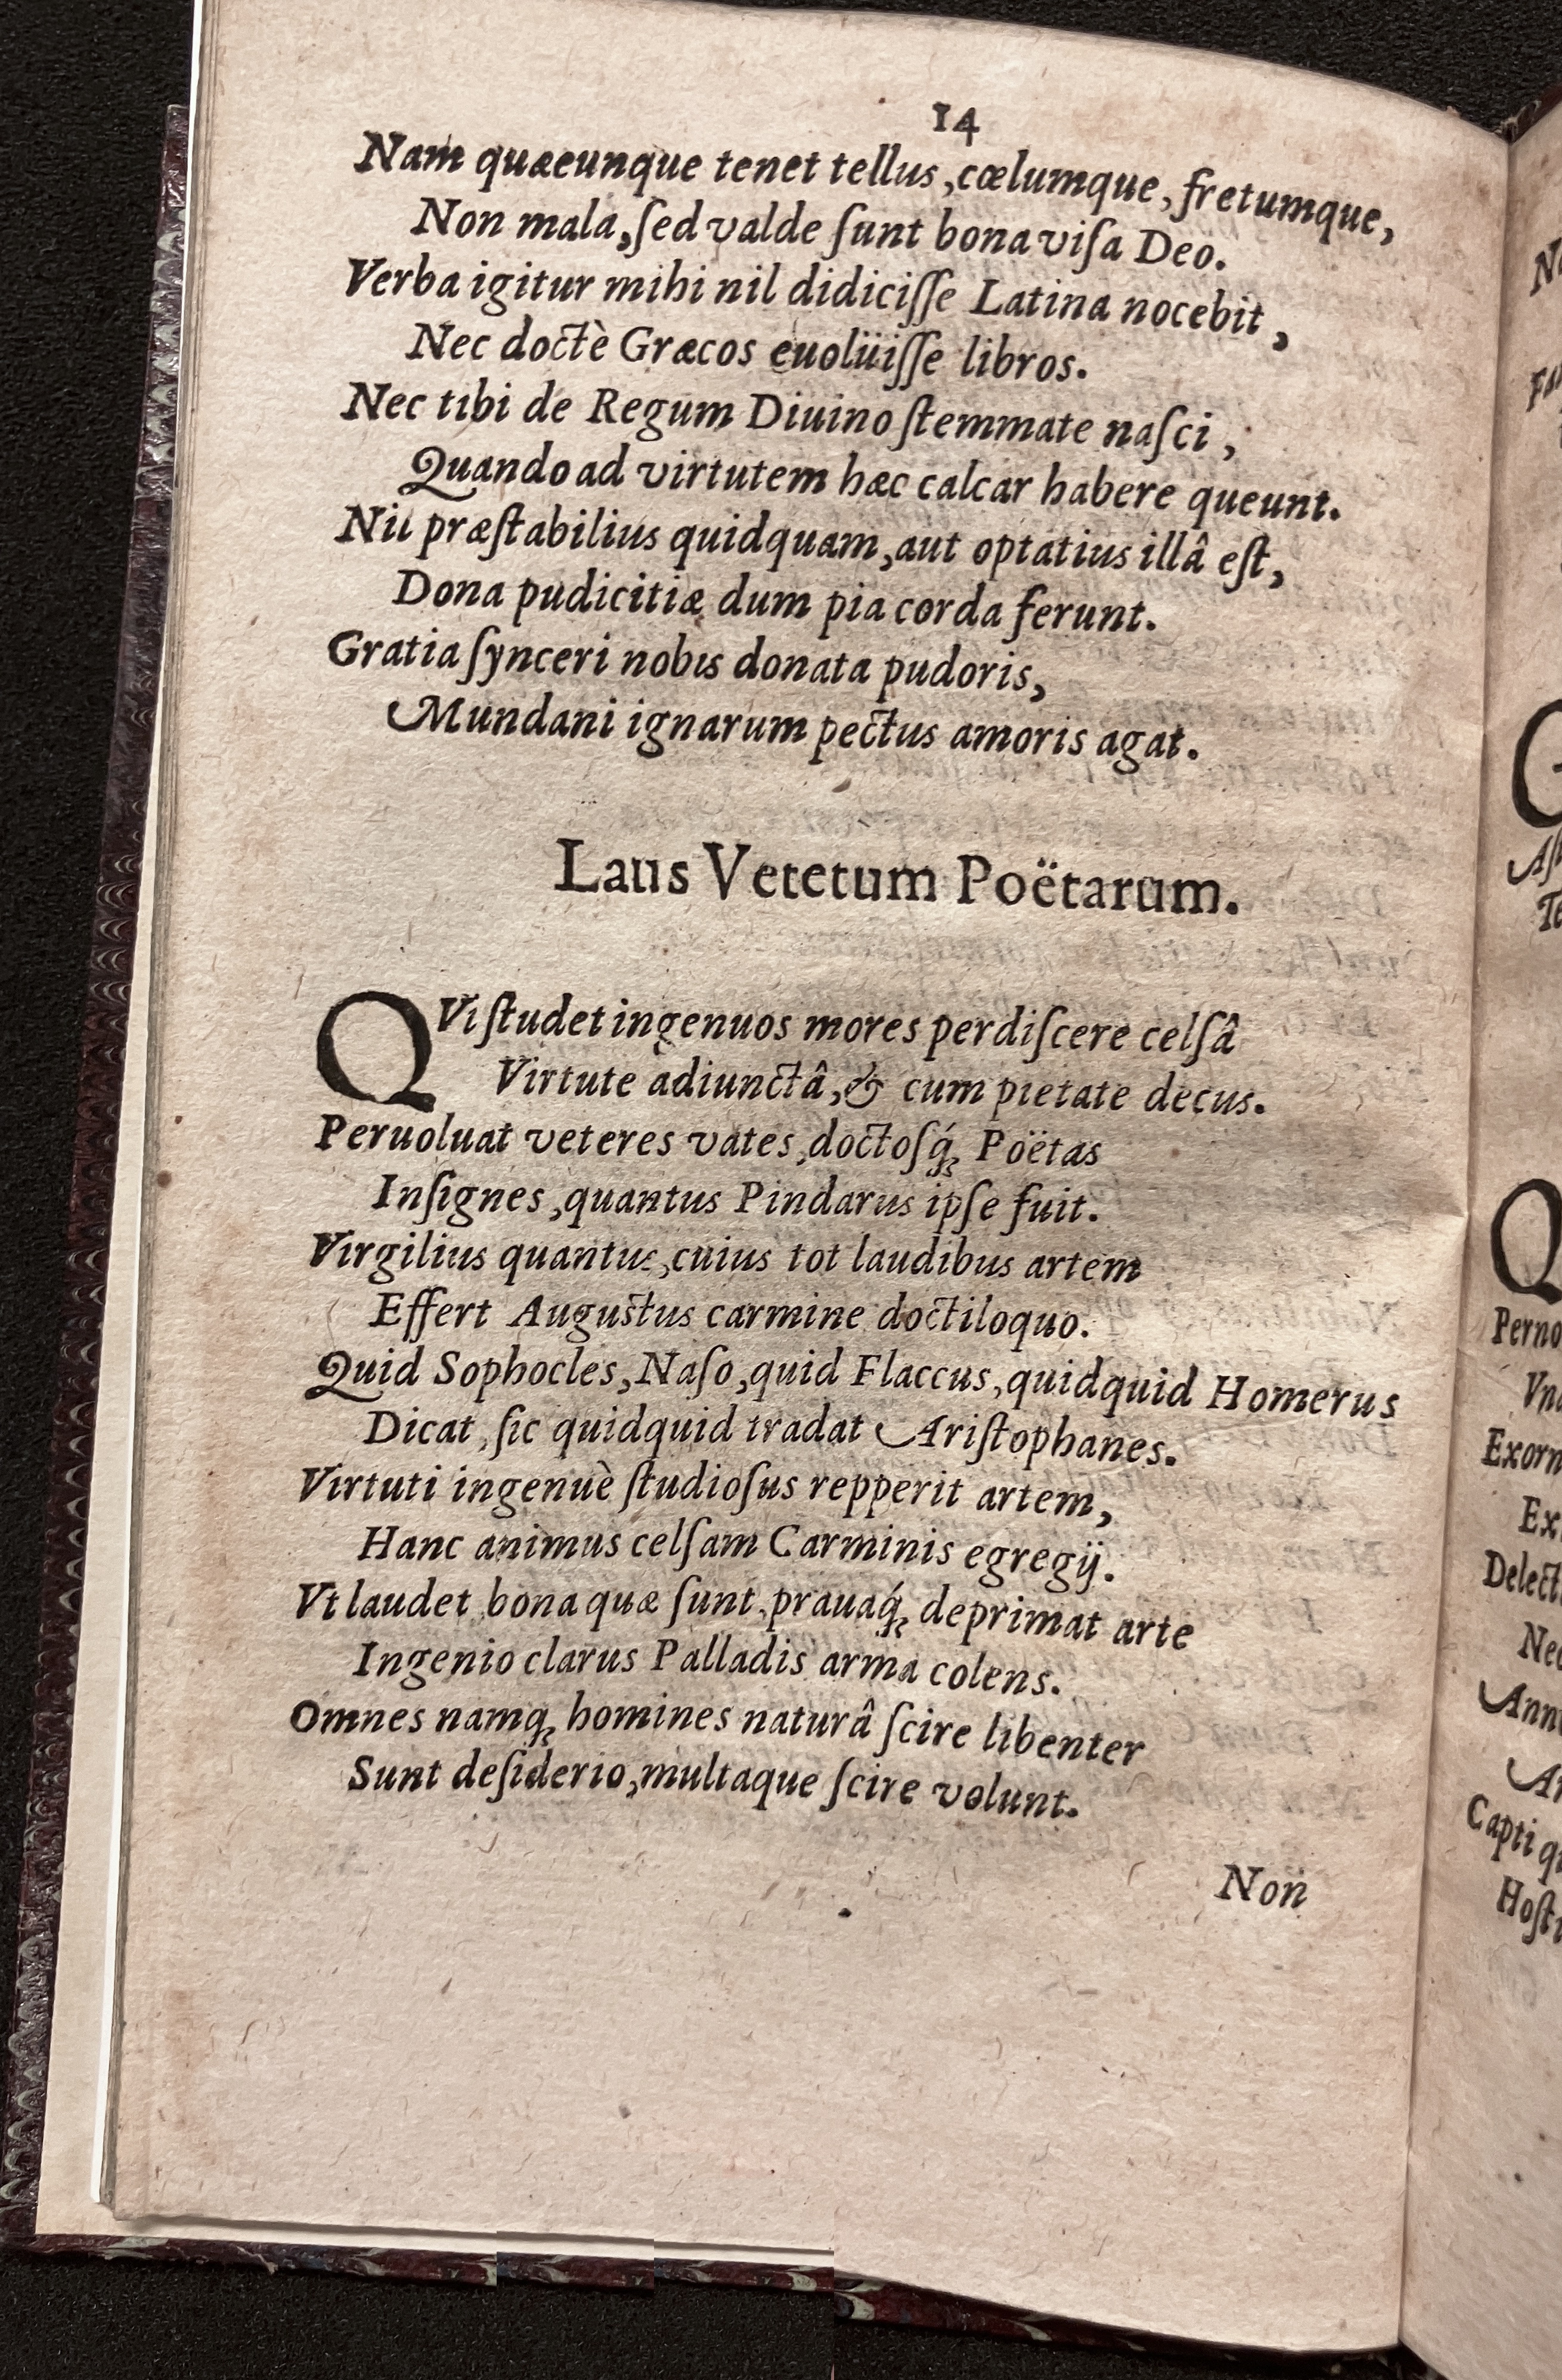 14
Nam quæeunque tenet tellus, cœlumque, fretumque,
Non mala, ſed valde ſunt bona viſa Deo.
Verba igitur mihi nil didiciſſe Latina nocebit,
Nec doctè Græcos euolüiſſe libros.
Nec tibi de Regum Diuino ſtemmate naſci,
Quando ad virtutem hæc calcar habere queunt.
Nil præſtabilius quidquam, aut optatius illâ eſt,
Dona pudicitiæ dum pia corda ferunt.
Gratia ſynceri nobis donata pudoris,
Mundani ignarum pectus amoris agat.
Laus Vetetum Poëtarum.
QVi ſtudet ingenuos mores perdiſcere celſâ
Virtute adiunctâ, & cum pietate decus.
Peruoluat veteres vates, doctoſq́ꝫ Poëtas
Inſignes, quantus Pindarus ipſe fuit.
Virgilius quantus, cuius tot laudibus artem
Effert Auguſtus carmine doctiloquo.
Quid Sophocles, Naſo, quid Flaccus, quidquid Homerus
Dicat, ſic quidquid tradat Ariſtophanes.
Virtuti ingenuè ſtudioſus repperit artem,
Hanc animus celſam Carminis egregij.
Vt laudet bona quæ ſunt, prauaq́ꝫ deprimat arte
Ingenio clarus Palladis arma colens.
Omnes namqꝫ homines naturâ ſcire libenter
Sunt deſiderio, multaque ſcire volunt.
Non
Q
Perno
Exorn
Ex
Delect
Capti